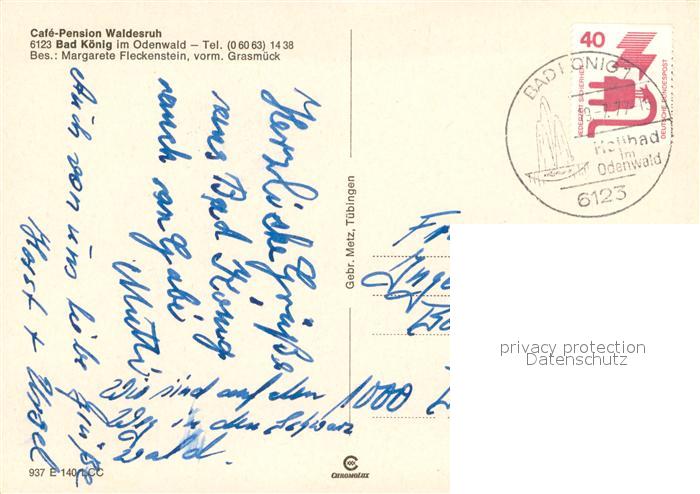 Café-Pension Waldesruh
6123 Bad König im Odenwald – Tel. (0 60 63) 14 38
Bes.: Margarete Fleckenstein, vorm. Grasmück
Herzliche Grüße
aus Bad König
auch von Gabi
Mutti
Wir sind auf dem
Weg in den Schwarz
Wald.
Auch von uns liebe Grüße
Horst + Ursel
Gebr. Metz, Tübingen
937 E 140 LCC
CHROMOLUX
40
JEDERZEIT SICHERHEIT
DEUTSCHE BUNDESPOST
BAD KÖNIG 1
Heilbad
im
Odenwald
6123
1000
privacy protection
Datenschutz